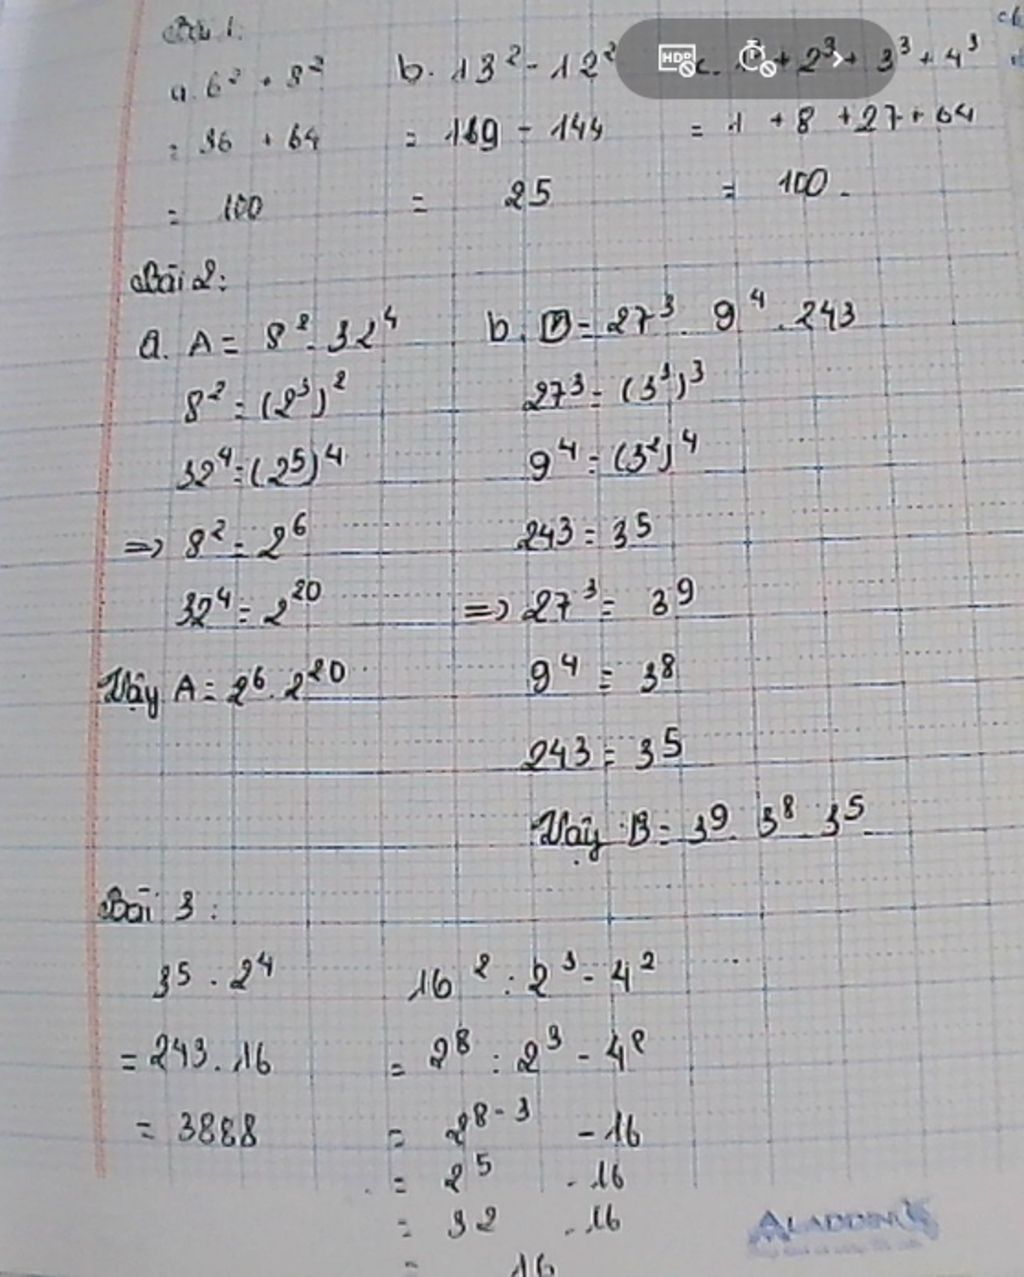 Bài 1:
a. 6² + 8² b. 13² - 12² c. 1³ + 2³ + 3³ + 4³
= 36 + 64 = 169 - 144 = 1 + 8 + 27 + 64
= 100 = 25 = 100.
Bài 2:
a. A = 8² . 32⁴ b. B = 27³ . 9⁴ . 243
8² = (2³)² 27³ = (3³)³
32⁴ = (2⁵)⁴ 9⁴ = (3²)⁴
=> 8² = 2⁶ 243 = 3⁵
32⁴ = 2²⁰ => 27³ = 3⁹
Vậy A = 2⁶ . 2²⁰ 9⁴ = 3⁸
243 = 3⁵
Vậy B = 3⁹ . 3⁸ 3⁵
Bài 3 :
3⁵ . 2⁴ 16² : 2³ - 4²
= 243 . 16 = 2⁸ : 2³ - 4²
= 3888 = 2⁸⁻³ - 16
= 2⁵ - 16
= 32 - 16
= 16
HDP
ALADDIN